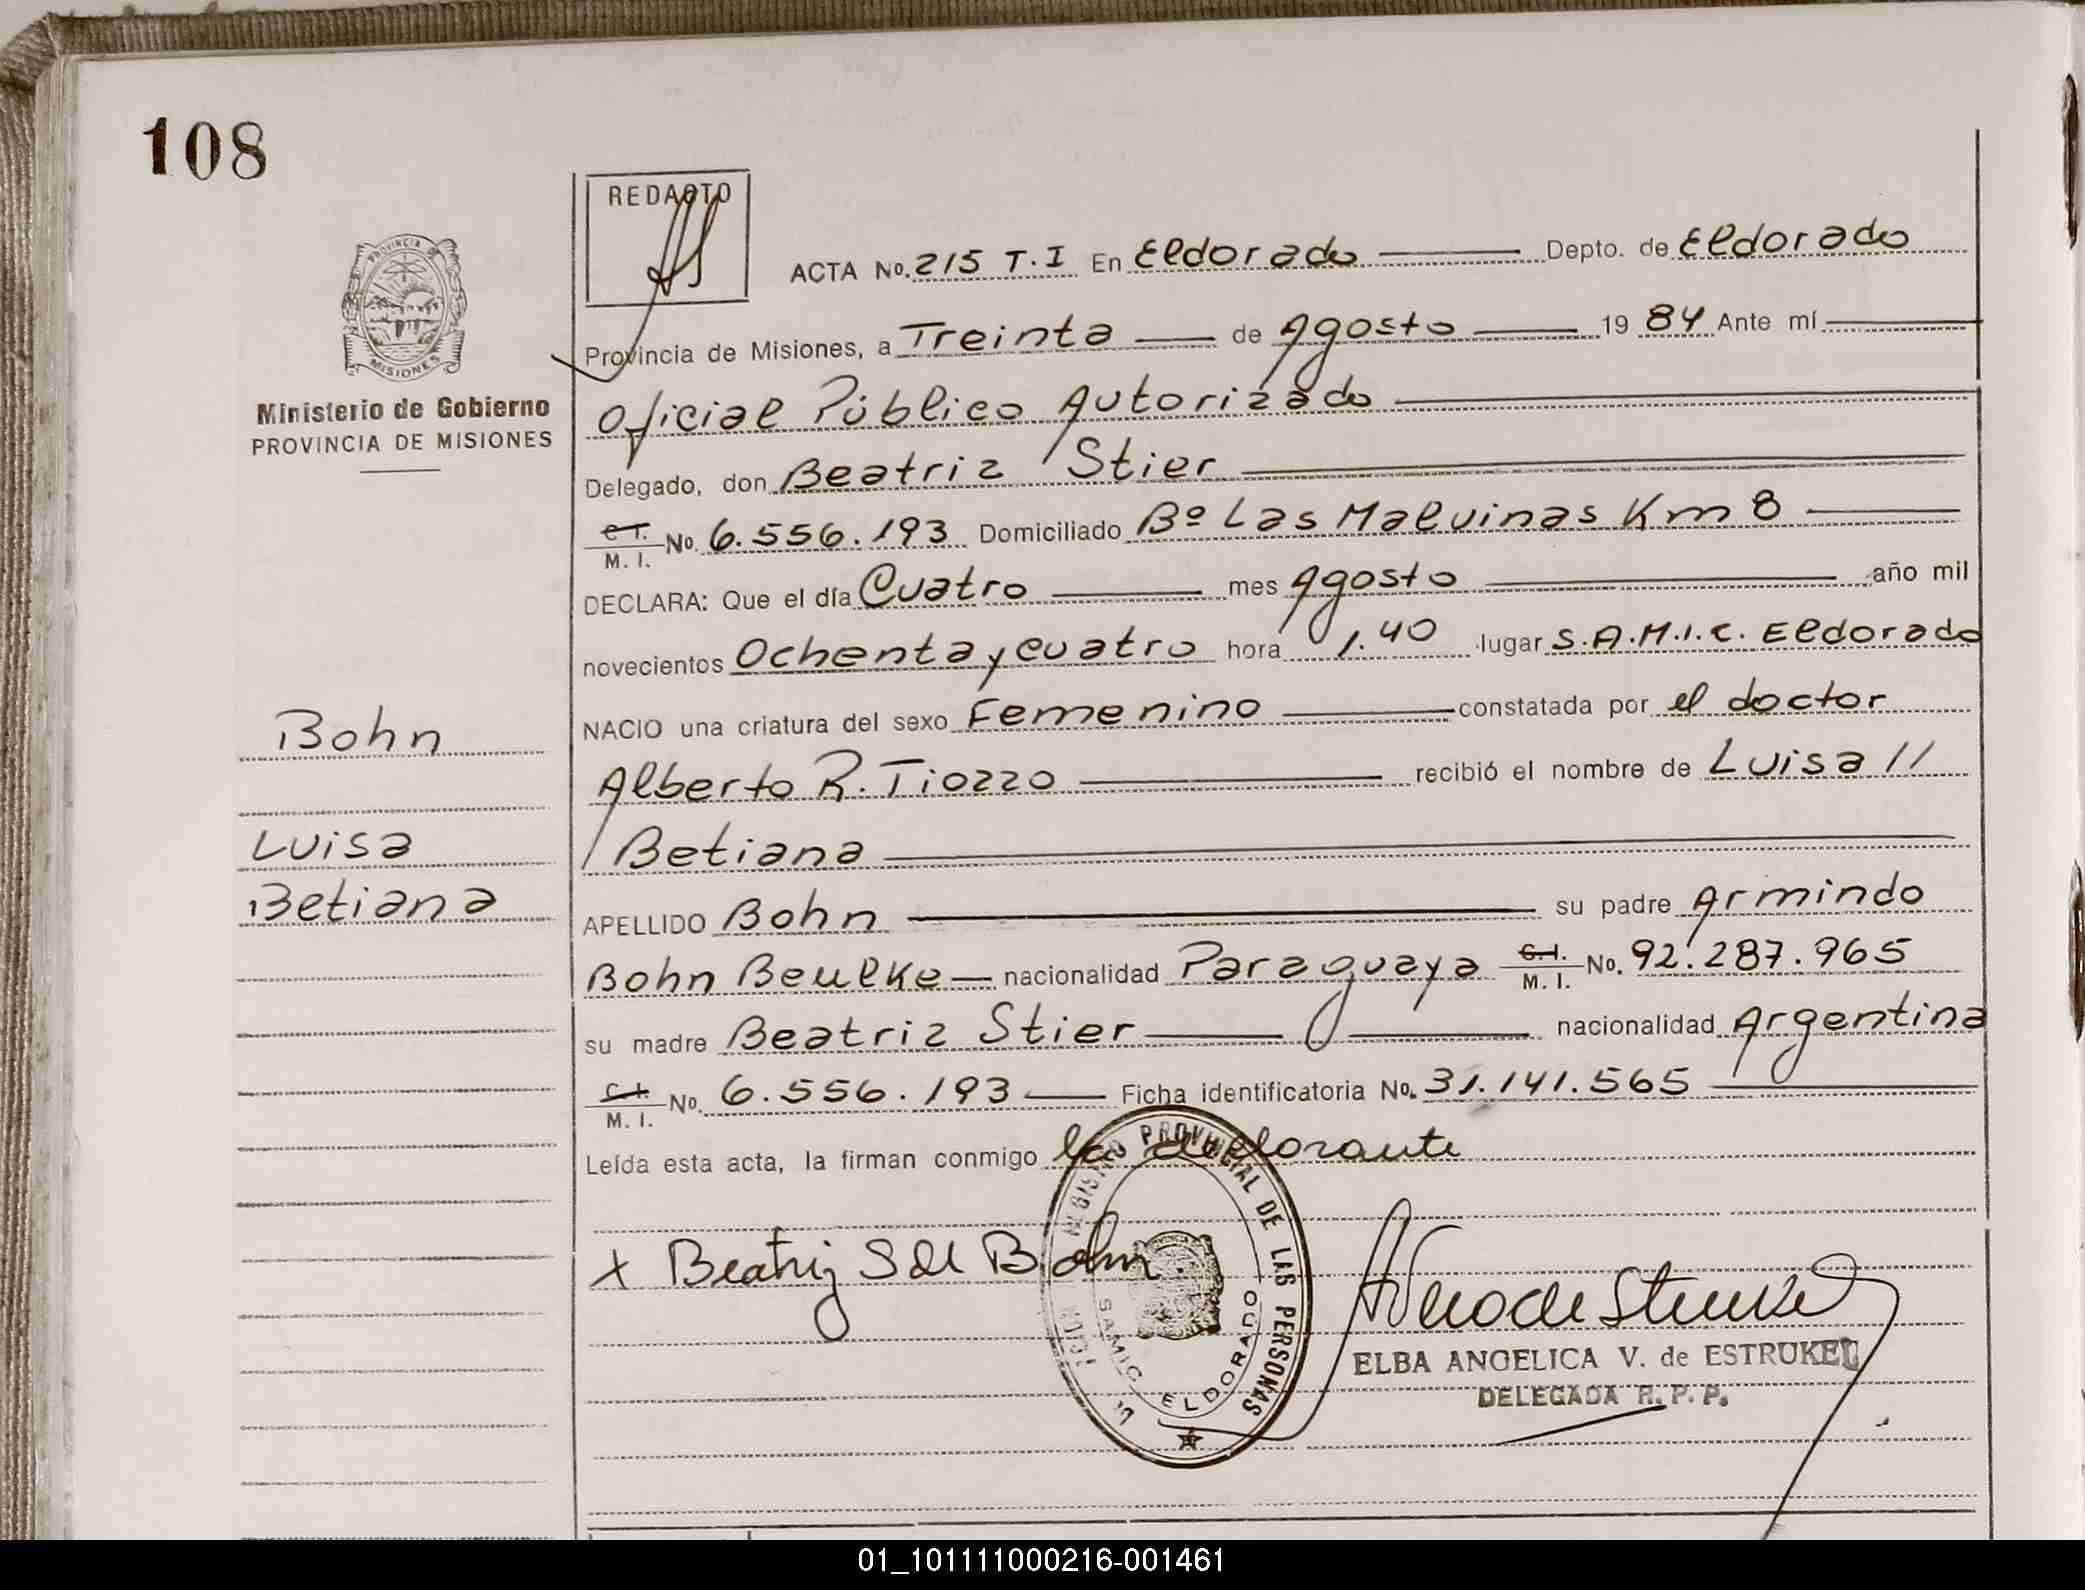 108
REDACTO
ACTA No. 215 T.I En Eldorado Depto. de Eldorado
Provincia de Misiones, a Treinta de Agosto 19 84 Ante mí
PROVINCIA DE
MISIONES
Ministerio de Gobierno
PROVINCIA DE MISIONES
Oficial Público Autorizado
Delegado, don Beatriz Stier
C.I.
M. I. No. 6.556.193 Domiciliado Bº Las Malvinas Km 8
DECLARA: Que el día Cuatro mes Agosto año mil
novecientos Ochenta y cuatro hora 1.40 lugar S.A.M.I.C. Eldorado
NACIO una criatura del sexo Femenino constatada por el doctor
Bohn
Alberto R. Tiozzo recibió el nombre de Luisa //
Luisa
Betiana
Betiana
APELLIDO Bohn su padre Armindo
Bohn Beulke nacionalidad Paraguaya C.I. M. I. No. 92.287.965
su madre Beatriz Stier nacionalidad Argentina
C.I.
M. I. No. 6.556.193 Ficha identificatoria No. 31.141.565
Leída esta acta, la firman conmigo la declorante
x Beatriz S de Bohn.
REGISTRO PROVINCIAL DE LAS PERSONAS
SAMIC ELDORADO
ELBA ANGELICA V. de ESTRUKEL
DELEGADA R. P. P.
01_101111000216-001461